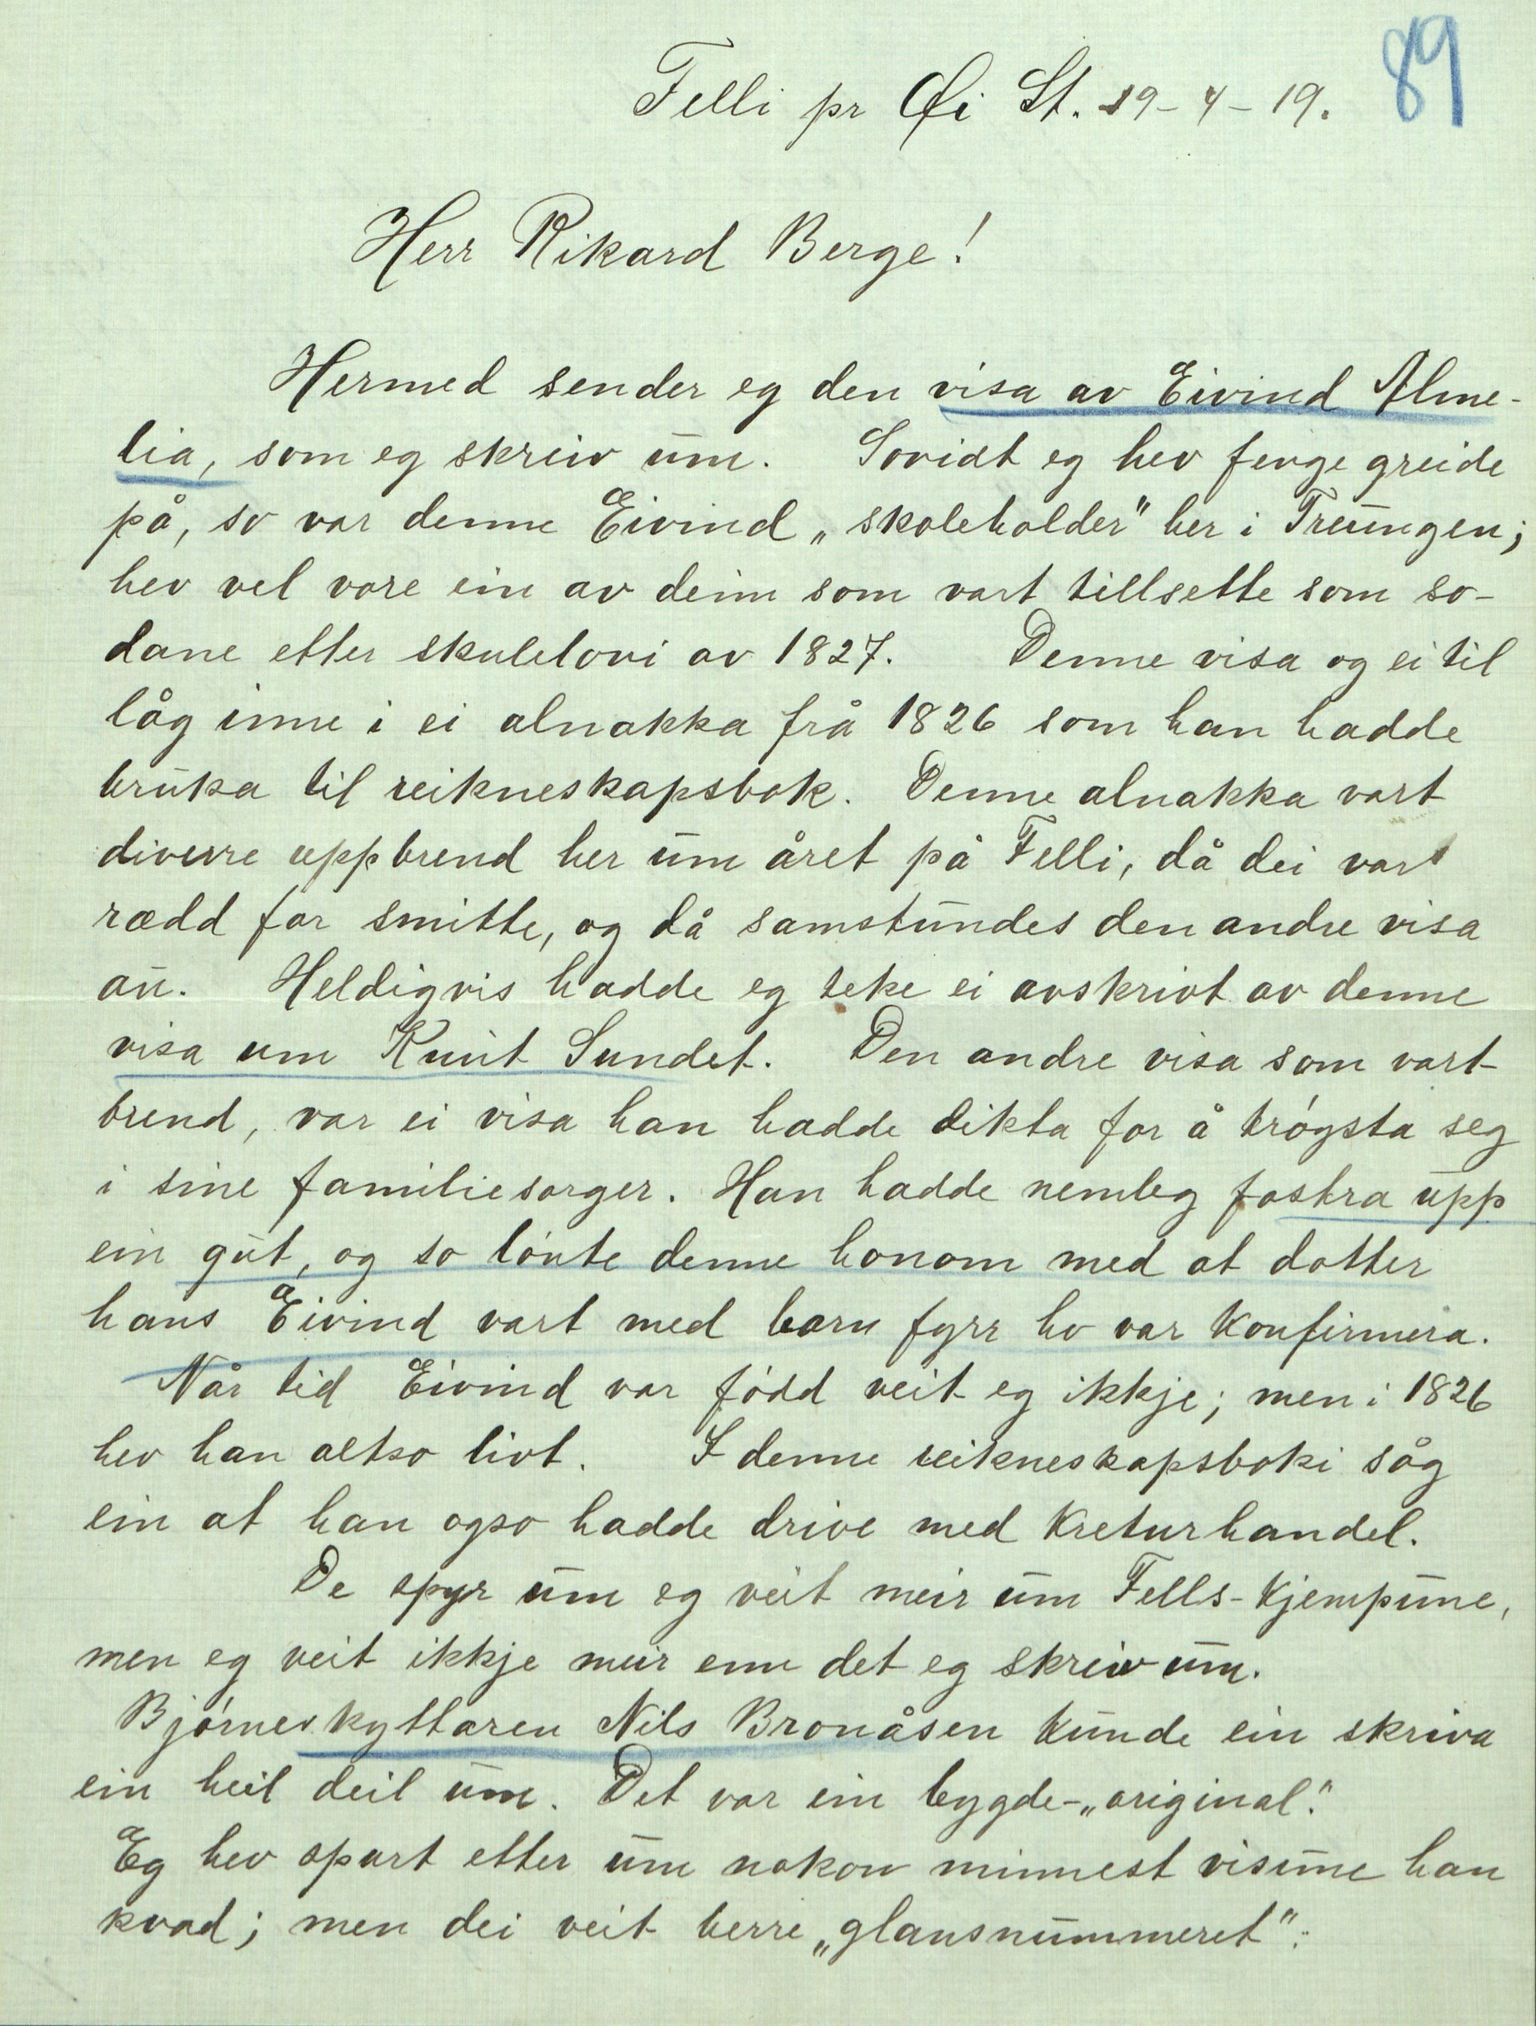 89
Felli pr Øi St. 19-4-19.
Herr Rikard Berge!
Hermed sender eg den visa av Eivind Alme-
lia, som eg skreiv um. Sovidt eg hev fenge greide
på, so var denne Eivind „skoleholder" her i Treungen;
hev vel vore ein av deim som vart tillsette som so-
dane etter skulelovi av 1827. Denne visa og ei til
låg inne i ei alnakka frå 1826 som han hadde
bruka til reikneskapsbok. Denne alnakka vart
diverre uppbrend her um året på Felli, då dei vart
rædd for smitte, og då samstundes den andre visa
au. Heldigvis hadde eg teke ei avskrivt av denne
visa um Knut Sundet. Den andre visa som vart
brend, var ei visa han hadde dikta for å trøysta seg
i sine familiesorger. Han hadde nemleg fostra upp
ein gut, og so lønte denne honom med at dotter
hans Eivind vart med barn fyrr ho var konfirmera.
Når tid Eivind var fødd veit eg ikkje; men i 1826
hev han altso livt. I denne reikneskapsboki såg
ein at han ogso hadde drive med kreturhandel.
De spyr um eg veit meir um Fells-kjempune,
men eg veit ikkje meir enn det eg skreiv um.
Bjørneskyttaren Nils Bronåsen kunde ein skriva
ein heil deil um. Det var ein bygde-„original".
Eg hev spurt etter um nokon minnest visune han
kvad; men dei veit berre „glansnummeret":